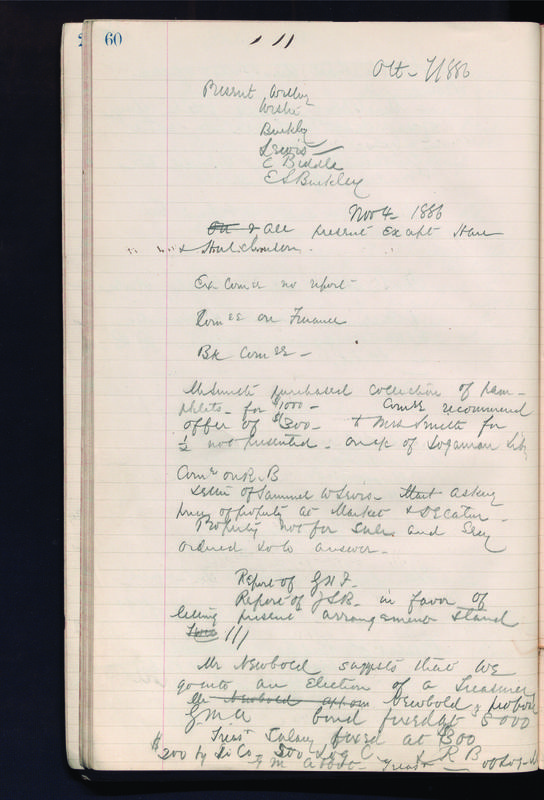 60
Oct - 7/1886
Present Willing
Wister
Buckley
Lewis
C Biddle
E S Buckley
Nov 4 - 1886
& All present Except Hare
& Hutchinson.
Ex Comee no report -
Comee on Finance
Bk Comee -
Mr Smith purchased collection of pam-
phlets - for $1000 - Comee recommend
offer of $300 - to Mrs Smith for
1/2 not presented - on of Loganian Lib
Comee on R. B
Letter of Samuel W Lewis - asking
price of property at Market & Decatur -
Property not for sale and Secy
ordered so to answer -
Report of
Report of J S B - in favor of
letting present arrangement stand
Mr Newbold suggests that we
go into an Election of a Treasurer
Mr Newbold Newbold
G M A bond fixed at 5000
Treasr Salary fixed at 300
$200 by Li Co - 500 Log C R B
G M Abbot - Treasr -